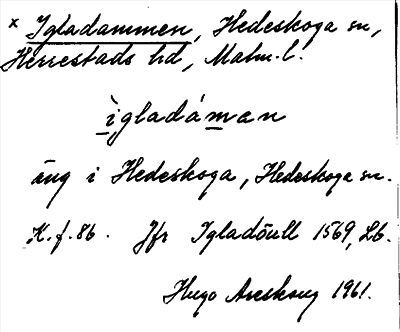 x Igladammen, Hedeskoga sn,
Herrestads hd, Malm. l.
ìgladáman
äng i Hedeskoga, Hedeskoga sn.
K. f. 86. Jfr Igladöull 1569, Lb.
Hugo Areskoug 1961.